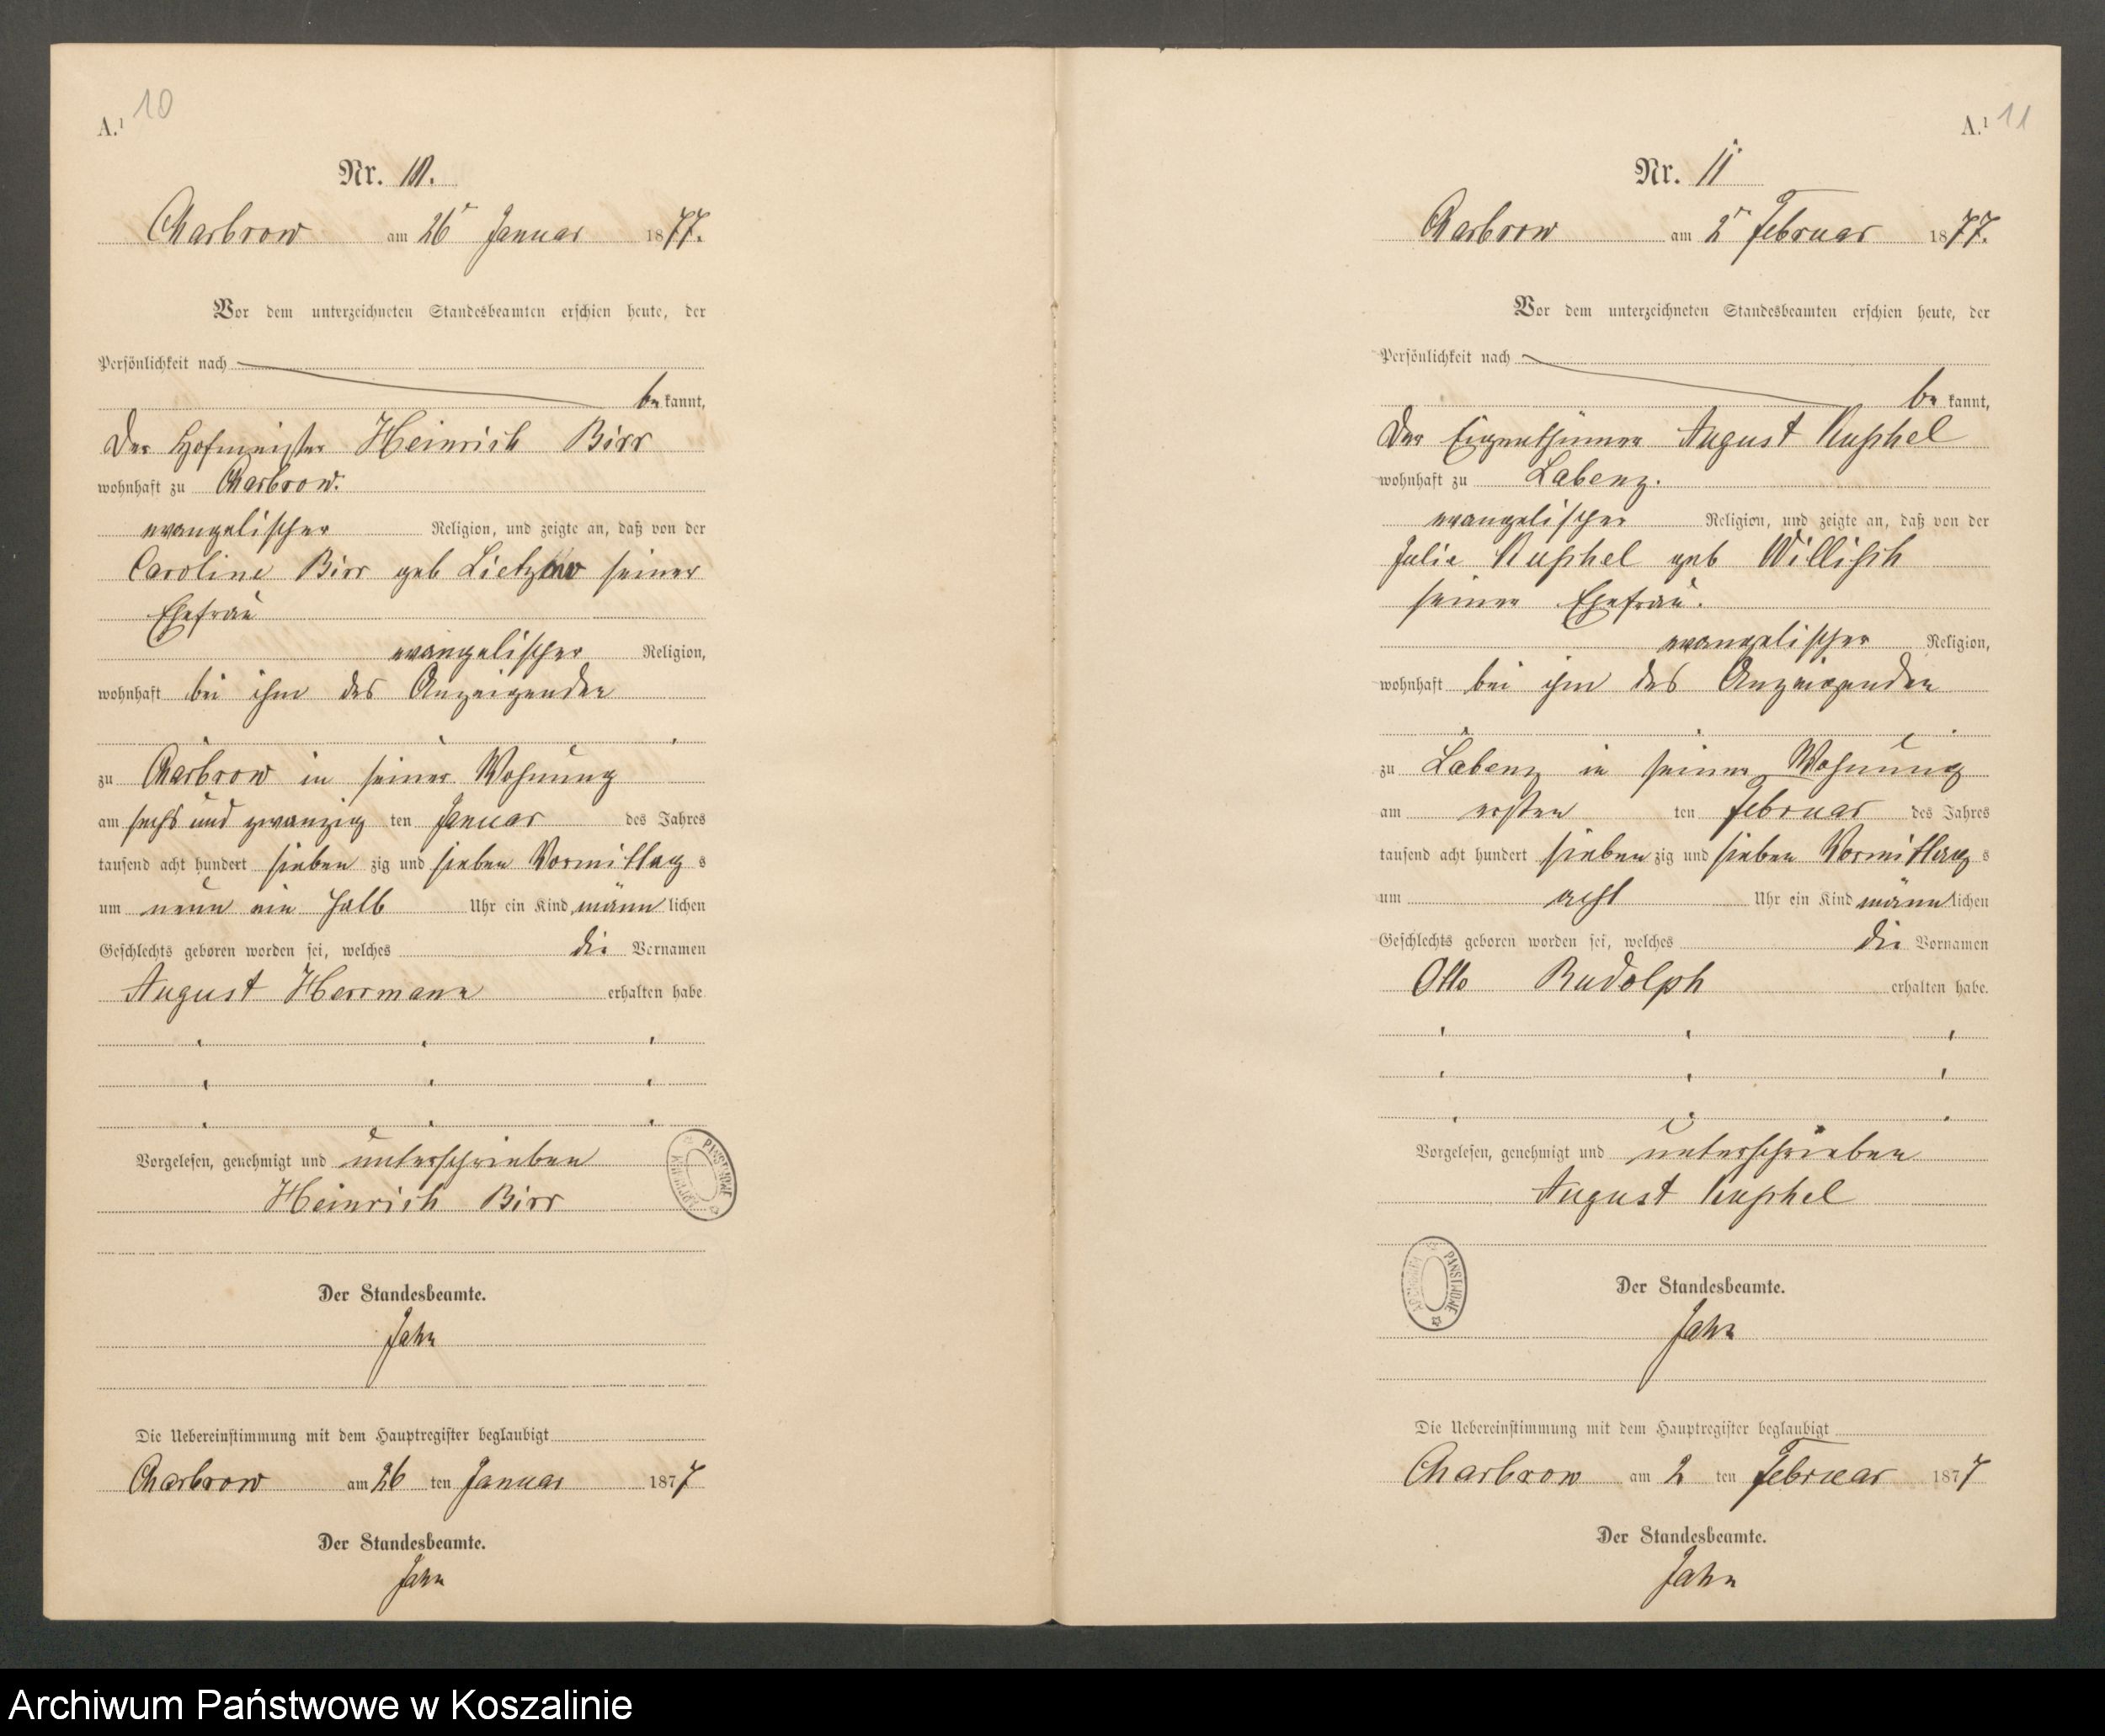 A.¹ 10
Nr. 10.
Charbrow am 26ᵗ Januar 1877.
Vor dem unterzeichneten Standesbeamten erschien heute, der
Persönlichkeit nach
be kannt,
Der Hofmeister Heinrich Birr
wohnhaft zu Charbrow.
evangelischer Religion, und zeigte an, daß von der
Caroline Birr geb Lietzow seiner
Ehefrau
evangelischer Religion,
wohnhaft bei ihm des Anzeigenden
zu Charbrow in seiner Wohnung
am sechs und zwanzig ten Januar des Jahres
tausend acht hundert sieben zig und sieben Vormittag s
um neun ein halb Uhr ein Kind männ lichen
Geschlechts geboren worden sei, welches die Vornamen
August Herrmann erhalten habe
Vorgelesen, genehmigt und unterschrieben
Heinrich Birr
ARCHIWUM PAŃSTWOWE
Der Standesbeamte.
Jahn
Die Uebereinstimmung mit dem Hauptregister beglaubigt
Charbrow am 26 ten Januar 1877
Der Standesbeamte.
Jahn
A.¹ 11
Nr. 11
Charbrow am 2ᵗ Februar 1877.
Vor dem unterzeichneten Standesbeamten erschien heute, der
Persönlichkeit nach
be kannt,
Der Eigenthümer August Kuschel
wohnhaft zu Labenz.
evangelischer Religion, und zeigte an, daß von der
Julie Kuschel geb Willisch
seiner Ehefrau.
evangelischer Religion,
wohnhaft bei ihm des Anzeigenden
zu Labenz in seiner Wohnung
am ersten ten Februar des Jahres
tausend acht hundert sieben zig und sieben Vormittag s
um acht Uhr ein Kind männ lichen
Geschlechts geboren worden sei, welches die Vornamen
Otto Rudolph erhalten habe.
Vorgelesen, genehmigt und unterschrieben
August Kuschel
ARCHIWUM PAŃSTWOWE
Der Standesbeamte.
Jahn
Die Uebereinstimmung mit dem Hauptregister beglaubigt
Charbrow am 2 ten Februar 1877
Der Standesbeamte.
Jahn
Archiwum Państwowe w Koszalinie